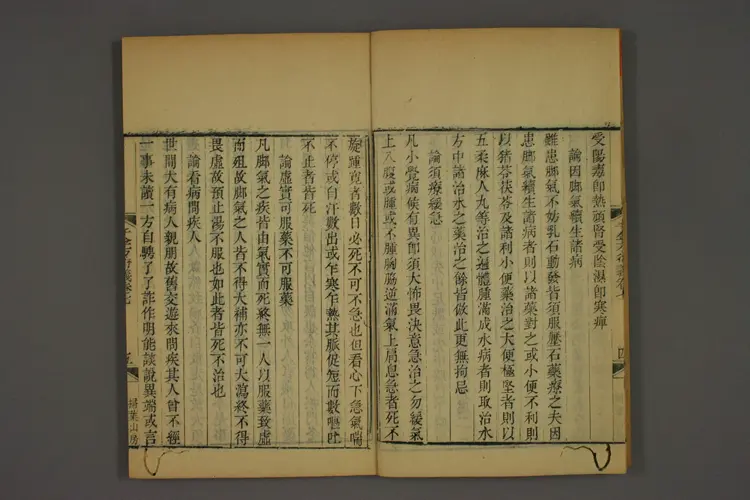 受陽毒即熱頑腎受陰濕即寒痹
論因脚氣續生諸病
雖患脚氣不妨乳石動發皆須服壓石藥療之夫因
患脚氣續生諸病者則以諸藥對之或小便不利則
以猪苓茯苓及諸利小便藥治之大便極堅者則以
五柔麻人丸等治之遍體腫滿成水病者則取治水
方中諸治水之藥治之餘皆倣此更無拘忌
論須療緩急
凡小覺病候有異即須大怖畏決意急治之勿緩氣
上入腹或腫或不腫胸脇逆滿氣上肩息急者死不
旋踵寬者數日必死不可不急也但看心下急氣喘
不停或白汗數出或乍寒乍熱其脈促短而數嘔吐
不止者皆死
論虛實可服藥不可服藥
凡脚氣之疾皆由氣實而死終無一人以服藥致虛
而殂故脚氣之人皆不得大補亦不可大瀉終不得
畏虛故預止湯不服也如此者皆死不治也
論看病問疾人
世間大有病人親朋故舊交遊來問疾其人曾不經
一事未讀一方自騁了了詐作明能談說異端或言
千金方衍義卷七
五
掃葉山房